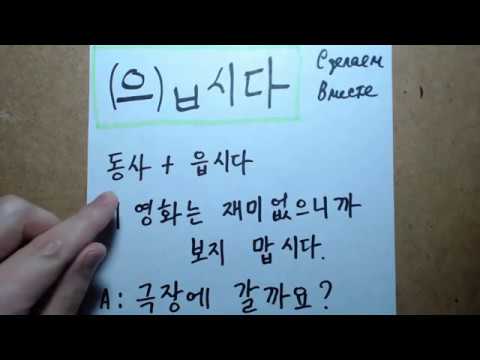 (으)ㅂ시다
Сделаем
Вместе
동사 + 읍시다
영화는 재미없으니까
보지 맙시다.
A: 극장에 갈까요?